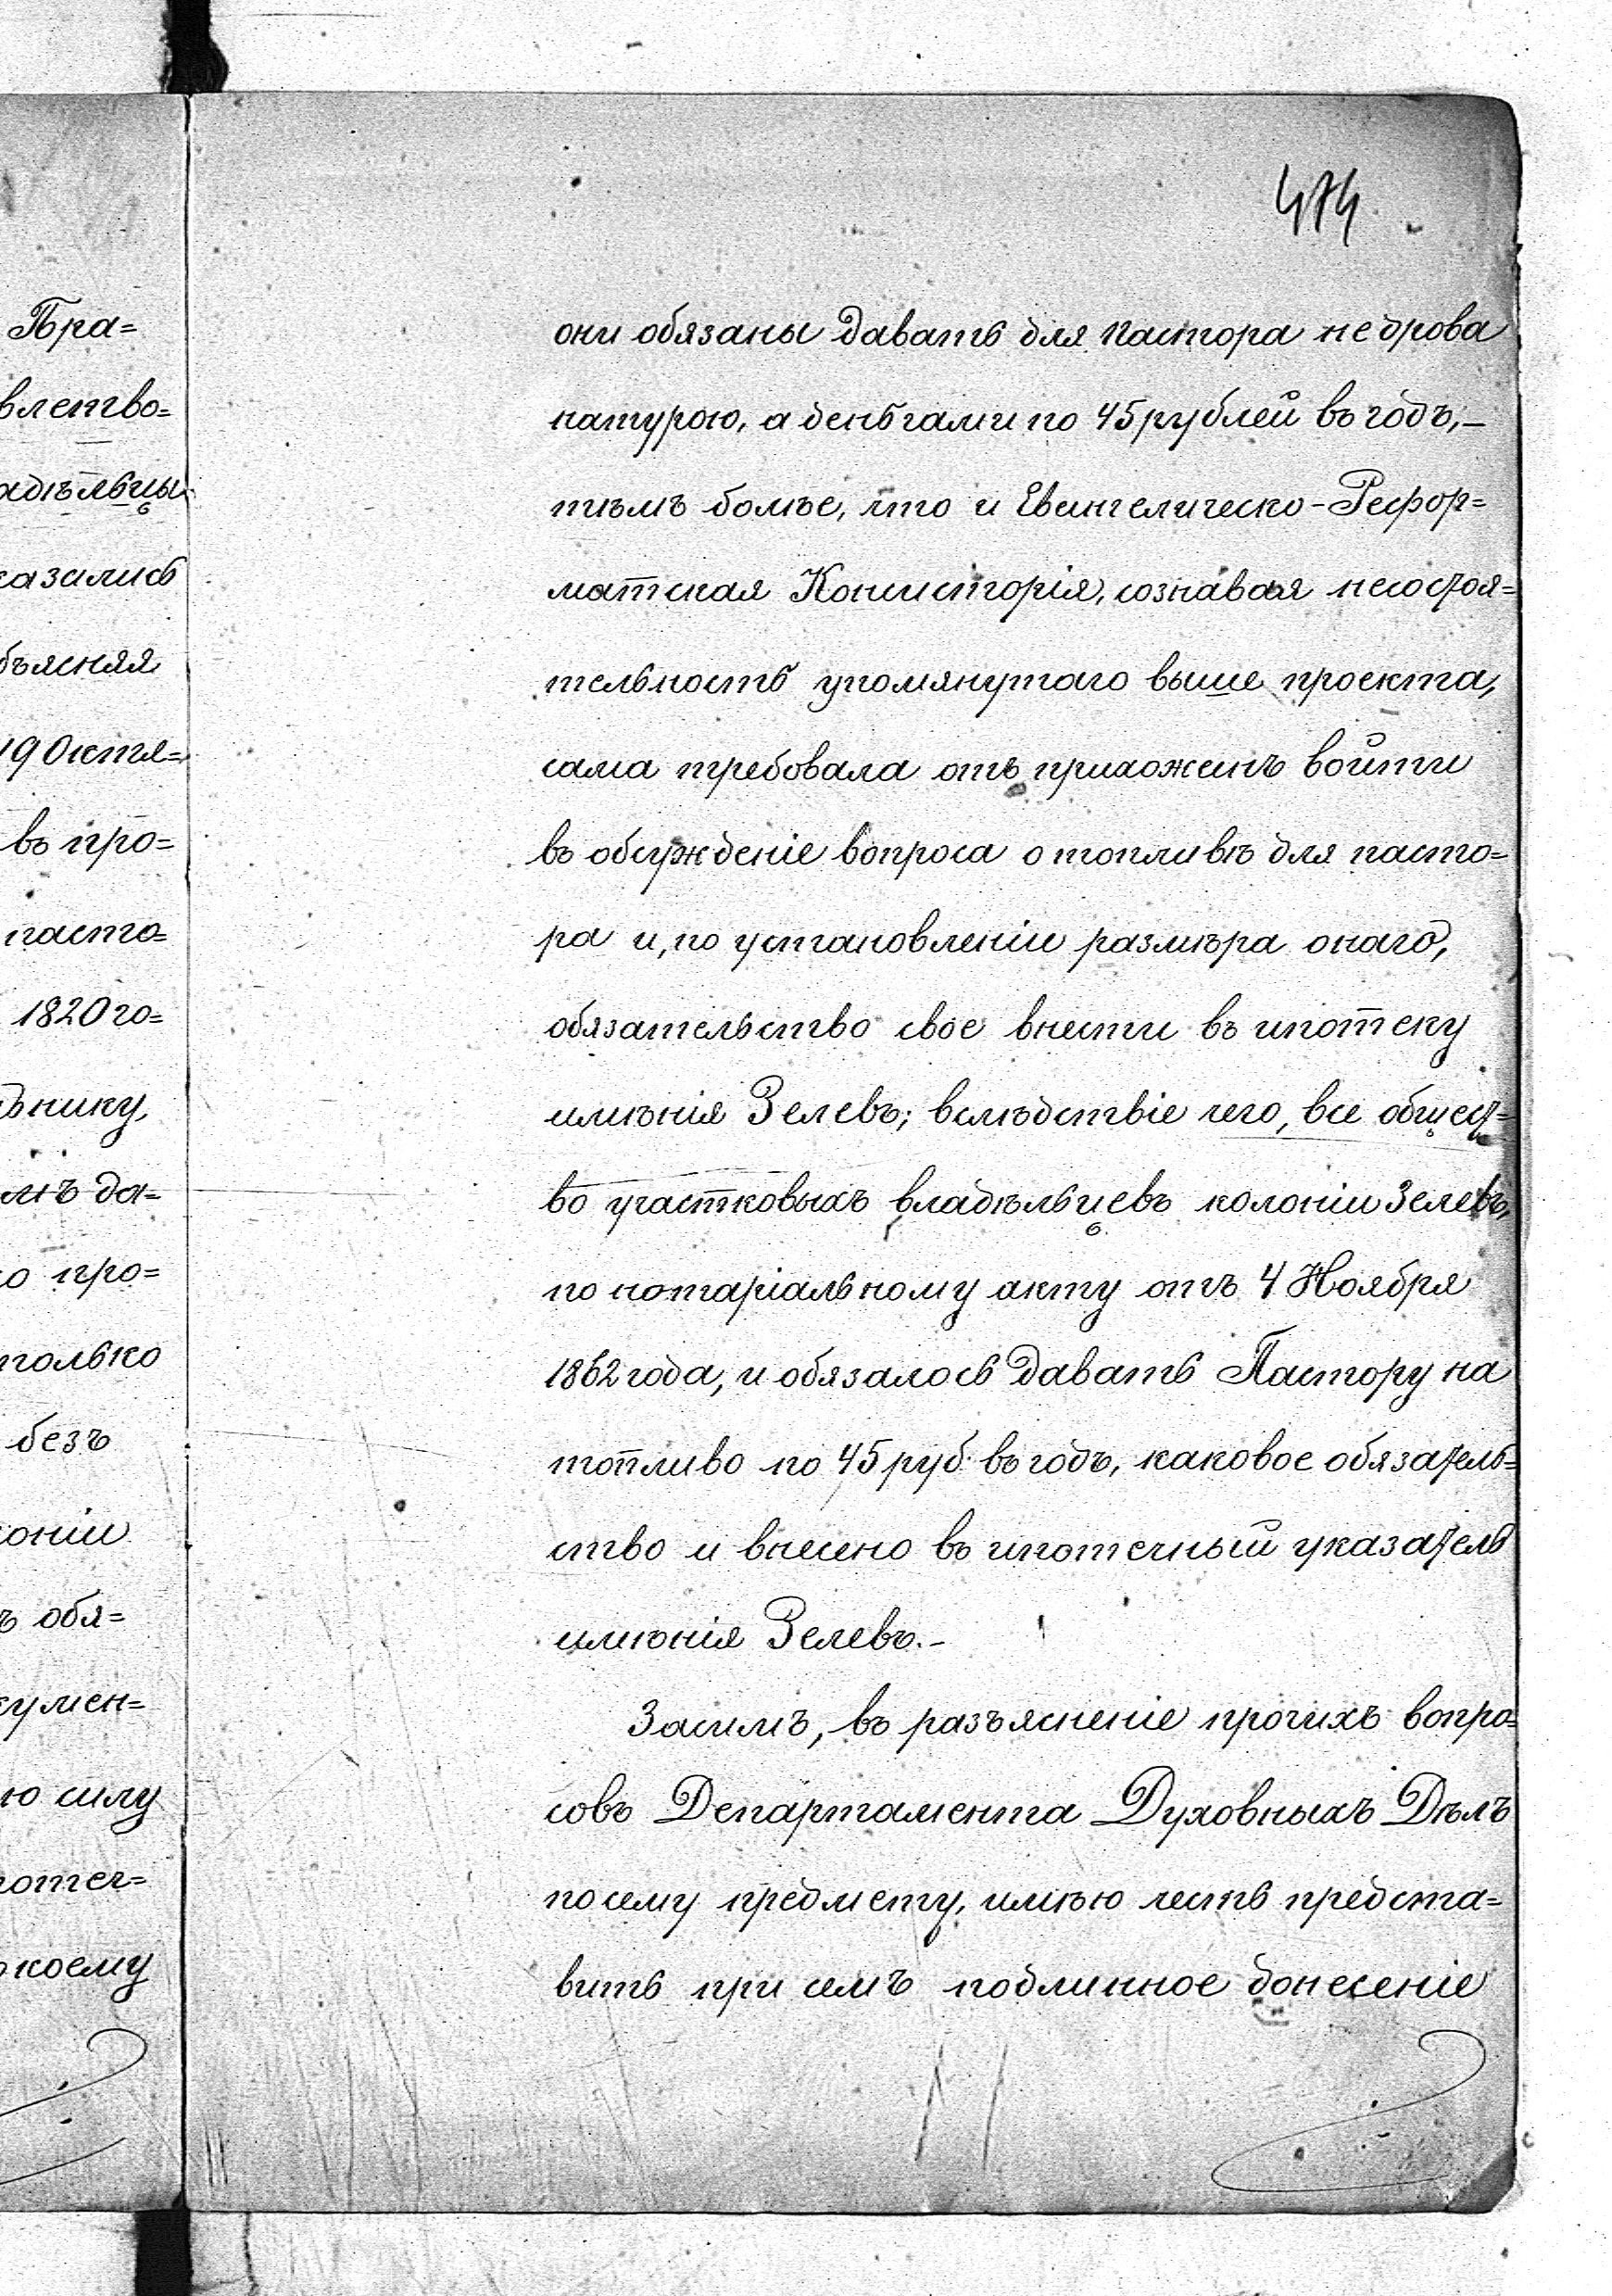 474
они обязаны давать для пастора не дрова
натурою, а деньгами по 45 рублей въ годъ,–
тѣмъ болѣе, что и Евангелическо-Рефор=
матская Консисторія, сознавая несостоя=
тельность упомянутаго выше проекта,
сама требовала отъ прихожанъ войти
въ обсужденіе вопроса о топливѣ для пасто=
ра и, по установленіи размѣра онаго,
обязательство свое внести въ ипотеку
имѣнія Зелевъ; вслѣдствіе чего, все общест=
во участковыхъ владѣльцевъ колоніи Зелевъ,
по нотаріальному акту отъ 4 Ноября
1862 года, и обязалось давать Пастору на
топливо по 45 руб. въ годъ, каковое обязатель=
ство и внесено въ ипотечный указатель
имѣнія Зелевъ.–
Засимъ, въ разъясненіе прочихъ вопро=
совъ Департамента Духовныхъ Дѣлъ
по сему предмету, имѣю честь предста=
вить при семъ подлинное донесеніе
бра=
влетво=
адѣльцы
казались
бъясняя
19 Октя=
въ про=
пасто=
1820 го=
ьнику,
омъ да=
ко про=
только
безъ
лоніи
ъ обя=
кумен=
ую силу
потеч=
о коему